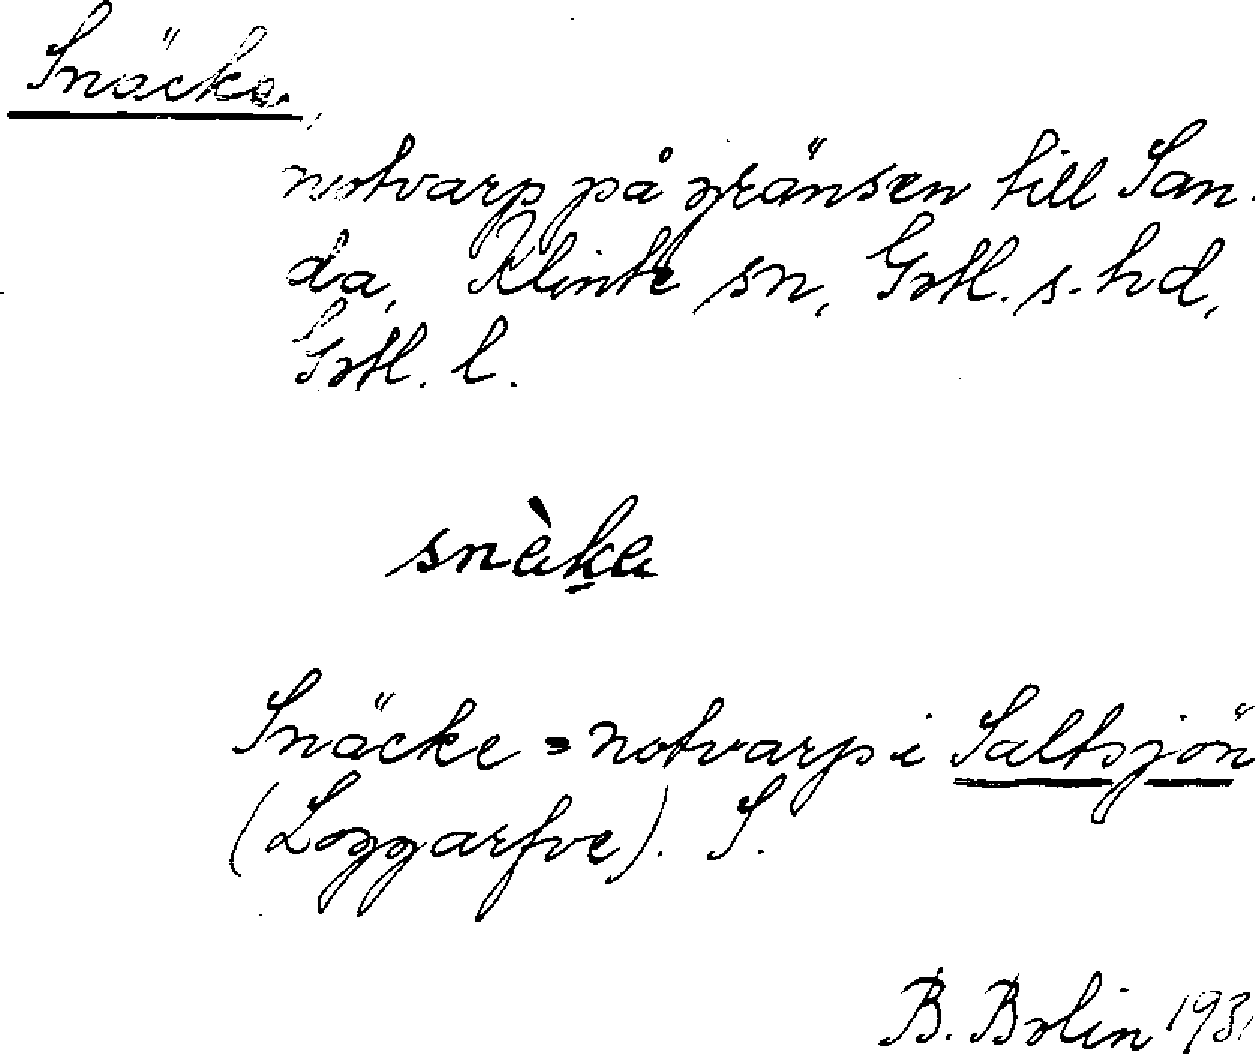 Snäcke,
notvarp på gränsen till San-
da, Klinte sn, Gotl. s. hd,
Gotl. l.
snàka
Snäcke = notvarp i Saltsjön
(Loggarfve). S.
B. Bolin 1931